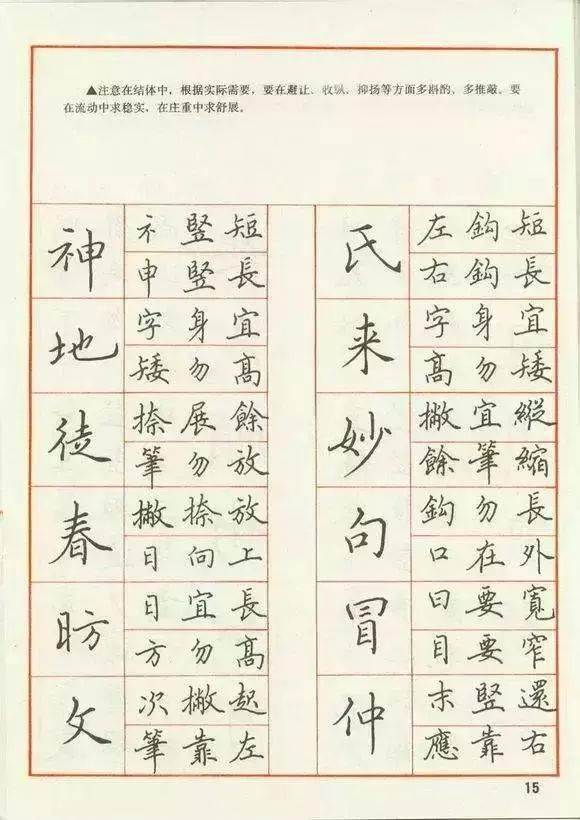 ▲注意在结体中，根据实际需要，要在避让、收纵，抑扬等方面多斟酌、多推敲。要
在流动中求稳实，在庄重中求舒展。
神
礻竪短
申竪長
地
字身宜
矮勿高
徒
捺展餘
筆勿放
春
撇捺放
日向上
昉
日宜長
方勿高
攵
次撇起
筆靠左
氏
左鈎短
右鈎長
来
字身宜
高勿矮
妙
撇宜縱
餘筆縮
句
鈎勿長
口在外
冒
曰要寬
目要窄
仲
末竪還
應靠右
15